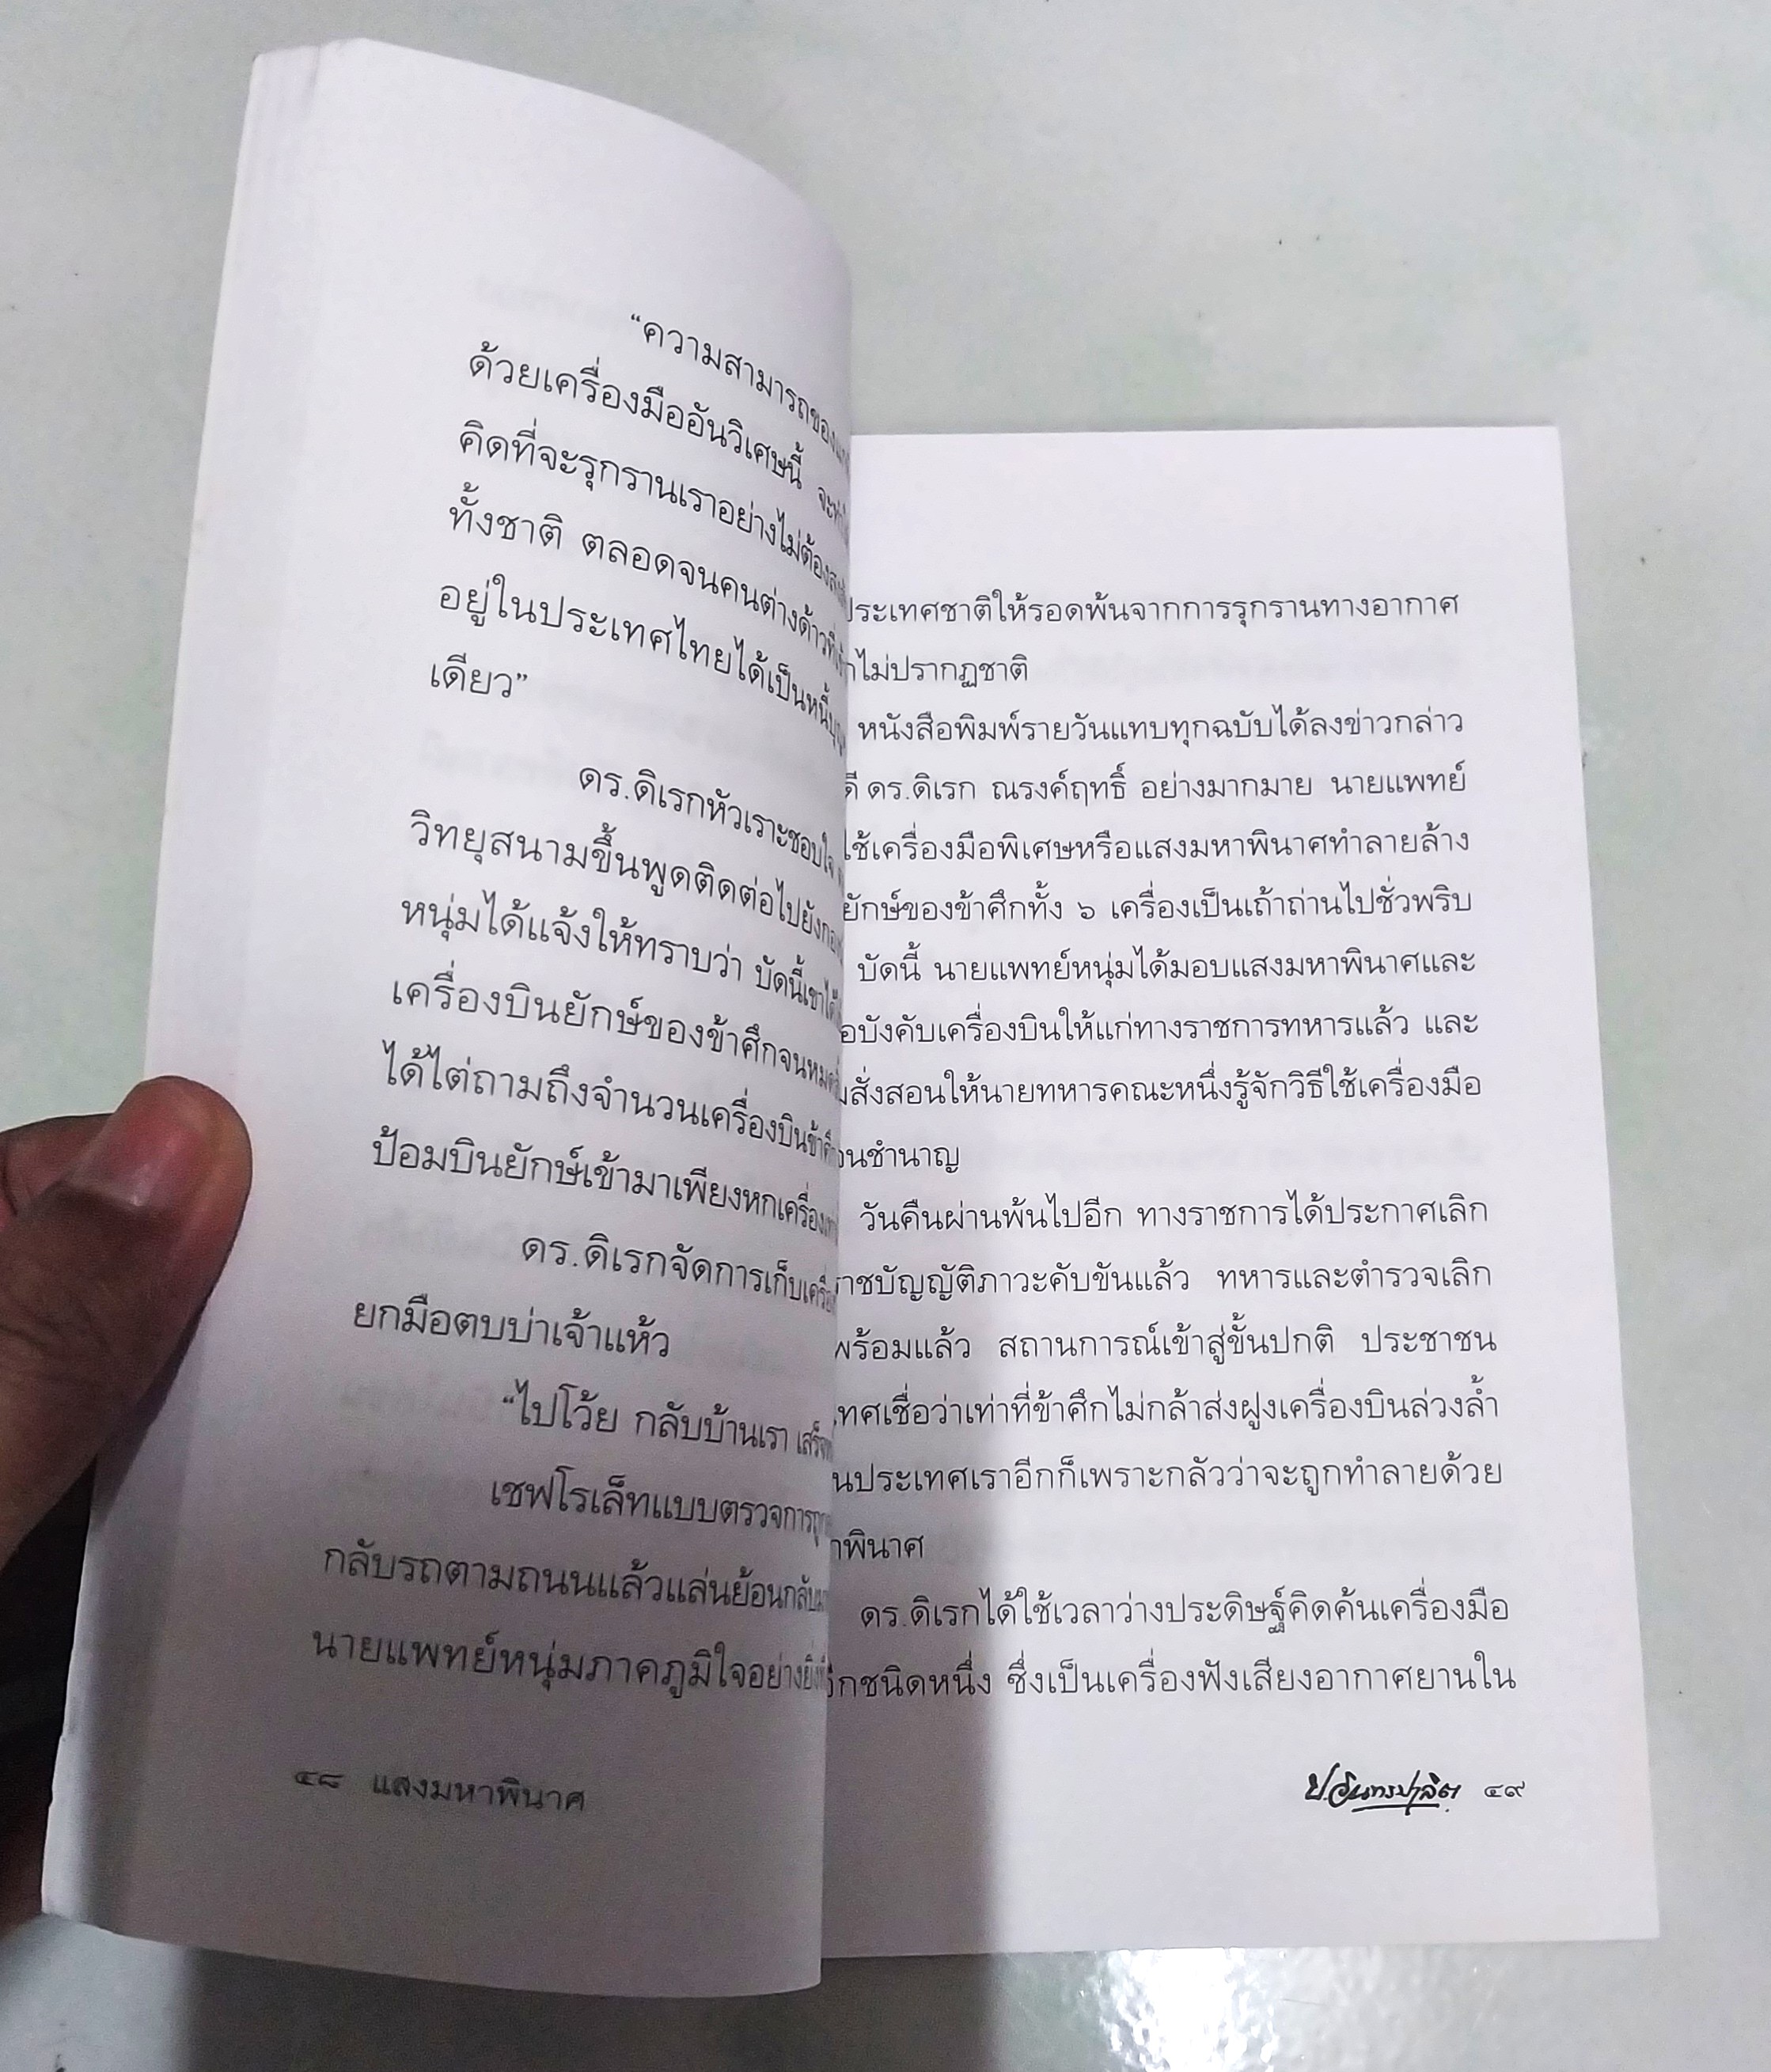 “ความสามารถของ
ด้วยเครื่องมืออันวิเศษนี้
คิดที่จะรุกรานเราอย่างไม่ต้อง
ทั้งชาติ ตลอดจนคนต่างด้าวที่
อยู่ในประเทศไทยได้เป็นหนี้
เดียว”
ดร.ดิเรกหัวเราะชอบใจ
วิทยุสนามขึ้นพูดติดต่อไปยัง
หนุ่มได้แจ้งให้ทราบว่า บัดนี้เขาได้
เครื่องบินยักษ์ของข้าศึกจนหมด
ได้ไต่ถามถึงจำนวนเครื่องบินข้าศึก
ป้อมบินยักษ์เข้ามาเพียงหกเครื่อง
ดร.ดิเรกจัดการเก็บ
ยกมือตบบ่าเจ้าแห้ว
“ไปโว้ย กลับบ้านเรา
เชฟโรเล็ทแบบตรวจการ
กลับรถตามถนนแล้วแล่นย้อนกลับ
นายแพทย์หนุ่มภาคภูมิใจอย่าง
๔๘ แสงมหาพินาศ
ประเทศชาติให้รอดพ้นจากการรุกรานทางอากาศ
ไม่ปรากฏชาติ
หนังสือพิมพ์รายวันแทบทุกฉบับได้ลงข่าวกล่าว
ดร.ดิเรก ณรงค์ฤทธิ์ อย่างมากมาย นายแพทย์
ใช้เครื่องมือพิเศษหรือแสงมหาพินาศทำลายล้าง
ยักษ์ของข้าศึกทั้ง ๖ เครื่องเป็นเถ้าถ่านไปชั่วพริบ
บัดนี้ นายแพทย์หนุ่มได้มอบแสงมหาพินาศและ
บังคับเครื่องบินให้แก่ทางราชการทหารแล้ว และ
สั่งสอนให้นายทหารคณะหนึ่งรู้จักวิธีใช้เครื่องมือ
จนชำนาญ
วันคืนผ่านพ้นไปอีก ทางราชการได้ประกาศเลิก
ราชบัญญัติภาวะคับขันแล้ว ทหารและตำรวจเลิก
พร้อมแล้ว สถานการณ์เข้าสู่ขั้นปกติ ประชาชน
เชื่อว่าเท่าที่ข้าศึกไม่กล้าส่งฝูงเครื่องบินล่วงล้ำ
ประเทศเราอีกก็เพราะกลัวว่าจะถูกทำลายด้วย
พินาศ
ดร.ดิเรกได้ใช้เวลาว่างประดิษฐ์คิดค้นเครื่องมือ
ชนิดหนึ่ง ซึ่งเป็นเครื่องฟังเสียงอากาศยานใน
ป.อินทรปาลิต ๔๙